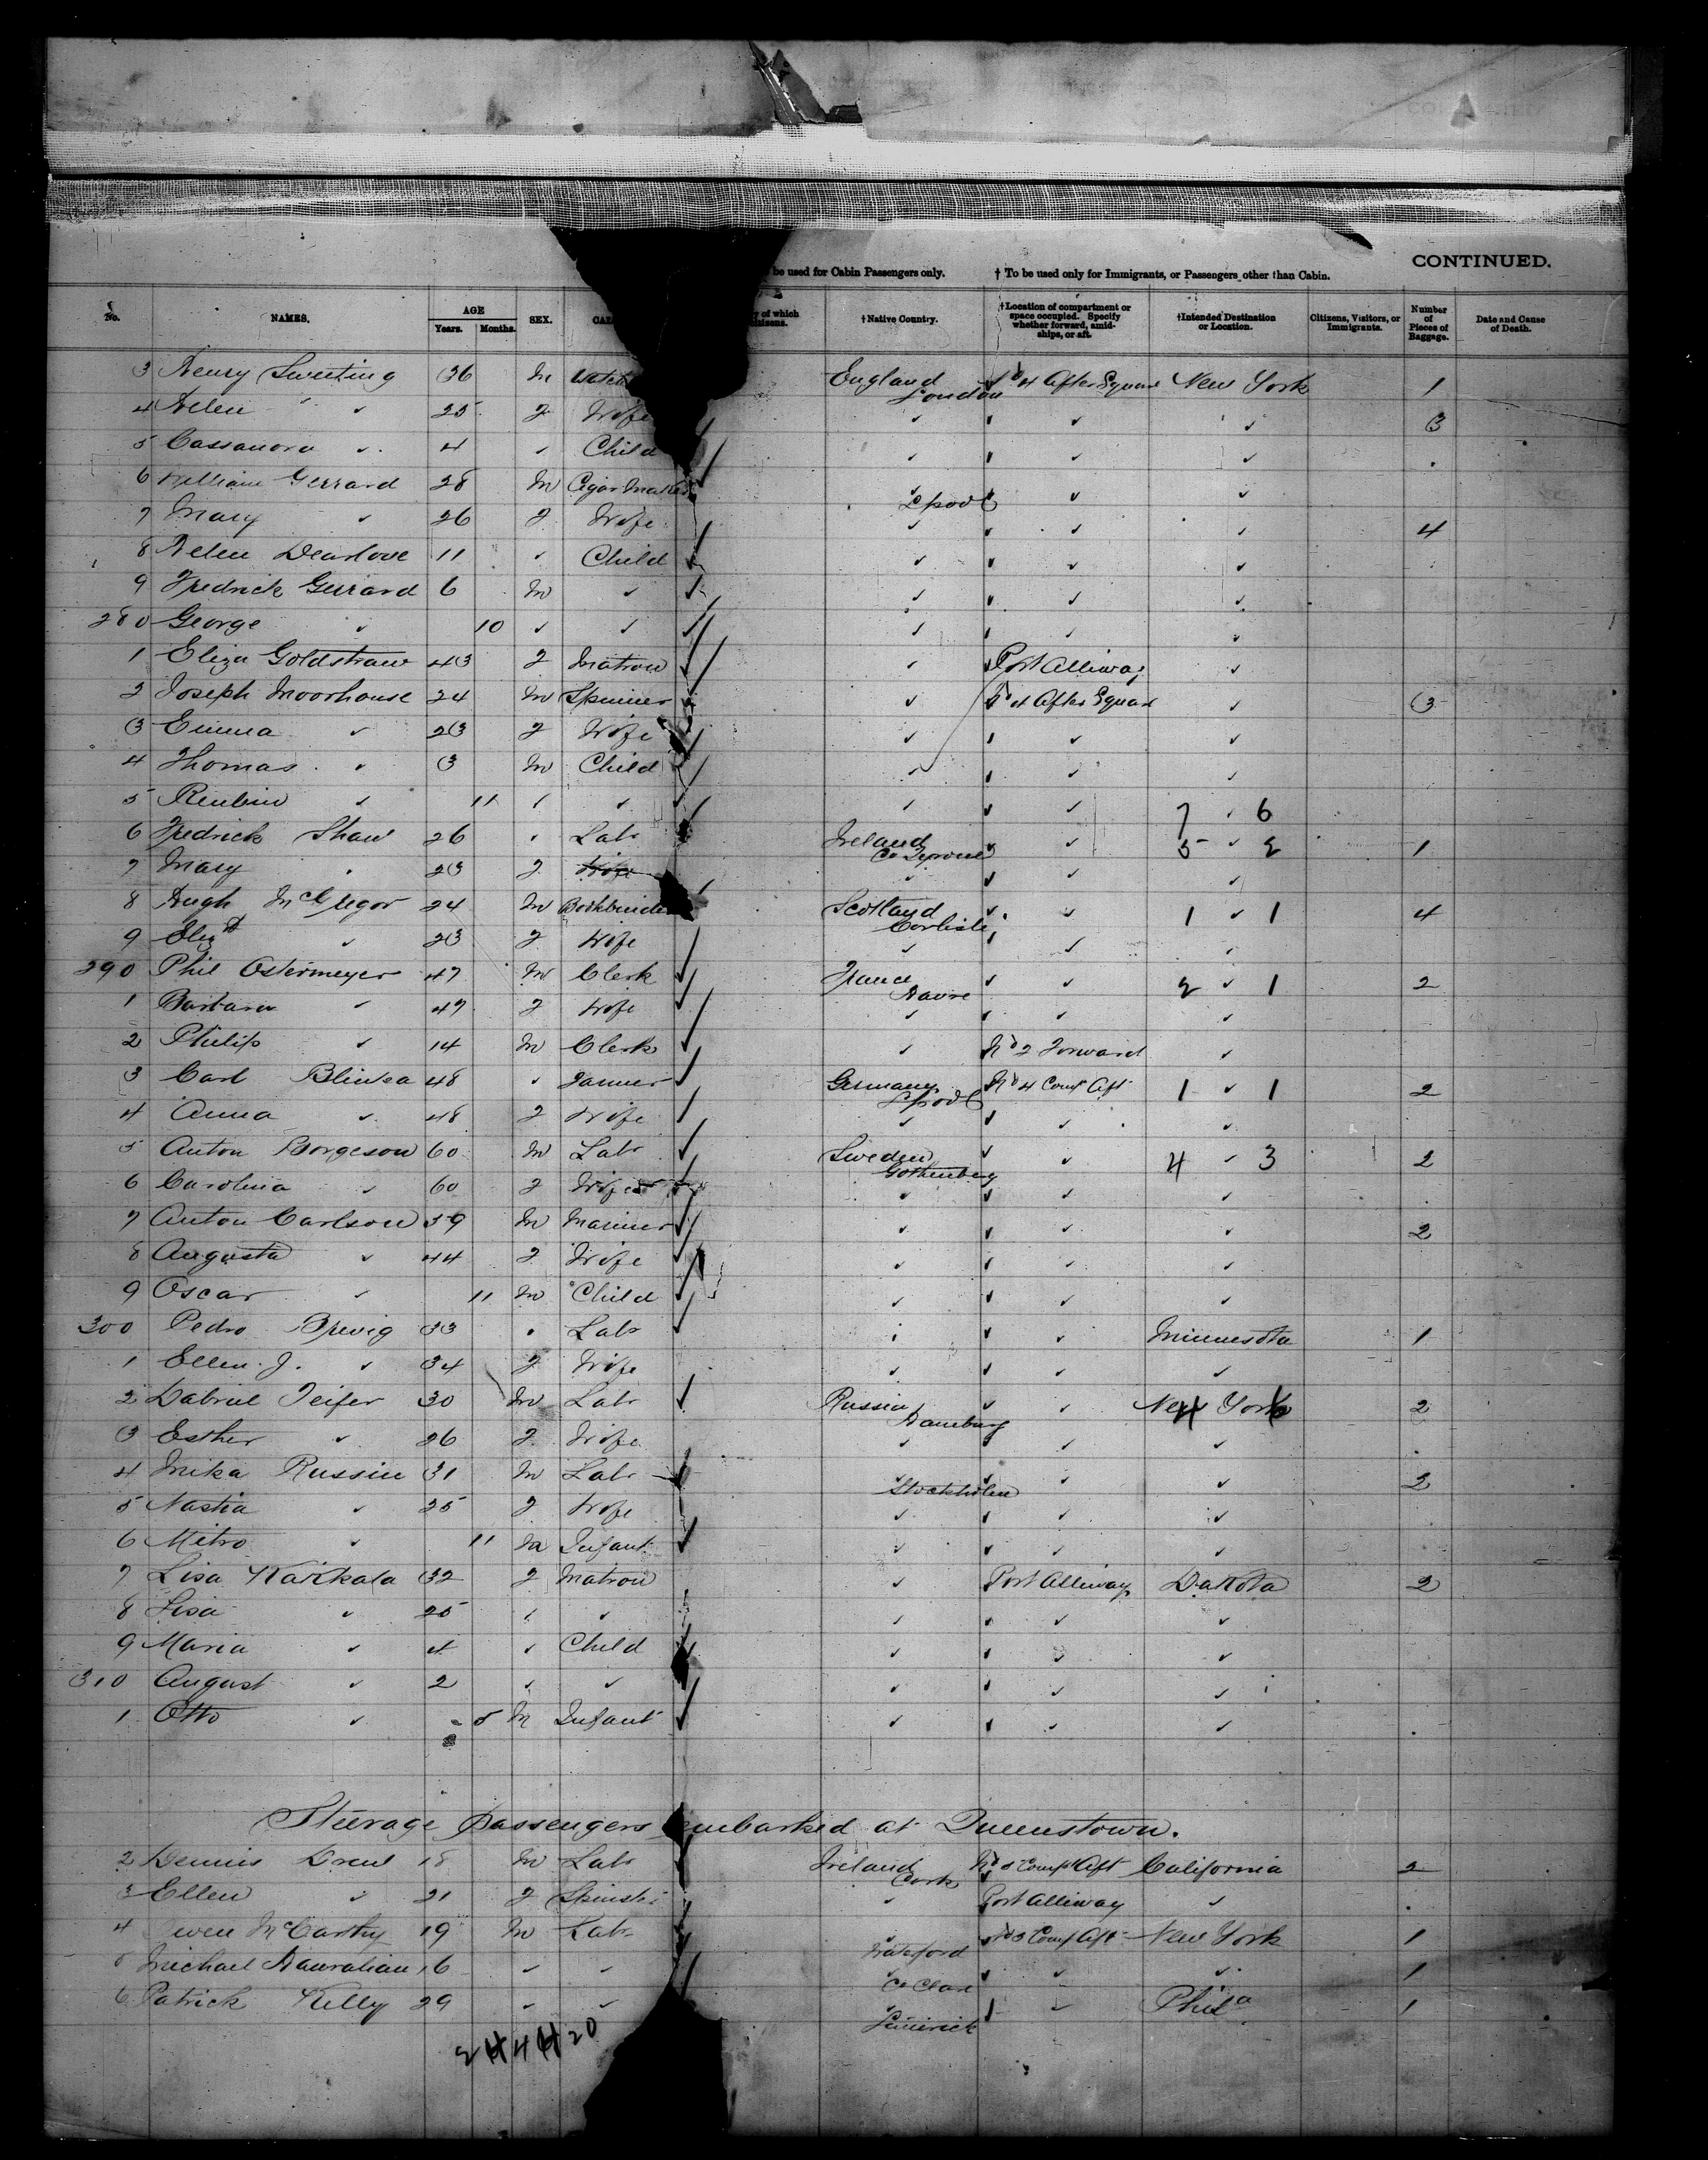 CONTINUED.
be used for Cabin Passengers only. † To be used only for Immigrants, or Passengers other than Cabin.
No. NAMES. AGE Years. Months. SEX. CAL y of which izens. †Native Country. †Location of compartment or space occupied. Specify whether forward, amidships, or aft. †Intended Destination or Location. Citizens, Visitors, or Immigrants. Number of Pieces of Baggage. Date and Cause of Death.
3 Henry Sweeting 36 M England London No 4 After Square New York 1
4 Helen " ✓ 25 F Wife ✓ ✓ ✓ 3
5 Cassanora ✓ 4 ✓ Child ✓ ✓ ✓
6 William Gerrard 28 M Cigar Maker ✓ Lpool ✓ ✓
7 Mary ✓ 26 F Wife ✓ ✓ ✓ 4
8 Helen Dearlove 11 ✓ Child ✓ ✓ ✓
9 Fredrick Gerrard 6 M ✓ ✓ ✓ ✓
280 George ✓ 10 ✓ ✓ ✓ ✓ ✓
1 Eliza Goldstraw 43 F Matron ✓ Port Alliway ✓
2 Joseph Moorhouse 24 M Spinner ✓ No 4 After Square ✓ 3
3 Emma ✓ 23 F Wife ✓ ✓ ✓
4 Thomas ✓ 3 M Child ✓ ✓ ✓
5 Reubin ✓ 11 ✓ ✓ ✓ ✓ 7 ✓ 6
6 Fredrick Shaw 26 ✓ Labr Ireland Co Tyrone ✓ 5 ✓ 2 1
7 Mary ✓ 23 F Wife ✓ ✓ ✓
8 Hugh McGregor 24 M Bookbinder Scotland Carlisle ✓ 1 ✓ 1 4
9 Elizth ✓ 23 F Wife ✓ ✓ ✓
290 Phil Ostermeyer 47 M Clerk France Havre ✓ 2 ✓ 1 2
1 Barbara ✓ 47 F Wife ✓ ✓ ✓
2 Philip ✓ 14 M Clerk ✓ No 2 Forward ✓
3 Carl 48 ✓ Germany Lpool No 4 Compt Aft 1 ✓ 1 2
4 Anna ✓ 48 F Wife ✓ ✓ ✓
5 Anton Borgeson 60 M Labr Sweden Gothenberg ✓ 4 ✓ 3 2
6 Carolina ✓ 60 F Wife ✓ ✓ ✓
7 Anton Carlson 39 M Mariner ✓ ✓ ✓ 2
8 Augusta ✓ 44 F Wife ✓ ✓ ✓
9 Oscar ✓ 11 M Child ✓ ✓ ✓
300 Pedro 33 ✓ Labr ✓ ✓ Minnesota 1
1 Ellen J. ✓ 34 F Wife ✓ ✓ ✓
2 Gabriel 30 M Labr Russia Hamburg ✓ New York 2
3 Esther ✓ 26 F Wife ✓ ✓ ✓
4 Mika Russin 31 M Labr ✓ Stockholm ✓ ✓ 2
5 Nastia ✓ 25 F Wife ✓ ✓ ✓
6 Mitro ✓ 11 M Infant ✓ ✓ ✓
7 Lisa Karikala 32 F Matron ✓ Port Alliway Dakota 2
8 Lisa ✓ 25 ✓ ✓ ✓ ✓ ✓
9 Maria ✓ 4 ✓ Child ✓ ✓ ✓
310 August ✓ 2 ✓ ✓ ✓ ✓ ✓
1 Otto ✓ 5 M Infant ✓ ✓ ✓
Steerage passengers embarked at Queenstown.
2 Dennis Drew 18 M Labr Ireland Cork No 3 Compt Aft California 2
3 Ellen ✓ 21 F Spinster ✓ Port Alliway ✓
4 Owen McCarthy 19 M Labr ✓ Waterford No 3 Compt Aft New York 1
5 Michael 16 ✓ ✓ ✓ Co Clare ✓ ✓ 1
6 Patrick Kelly 29 ✓ ✓ ✓ Limerick ✓ Phila 1